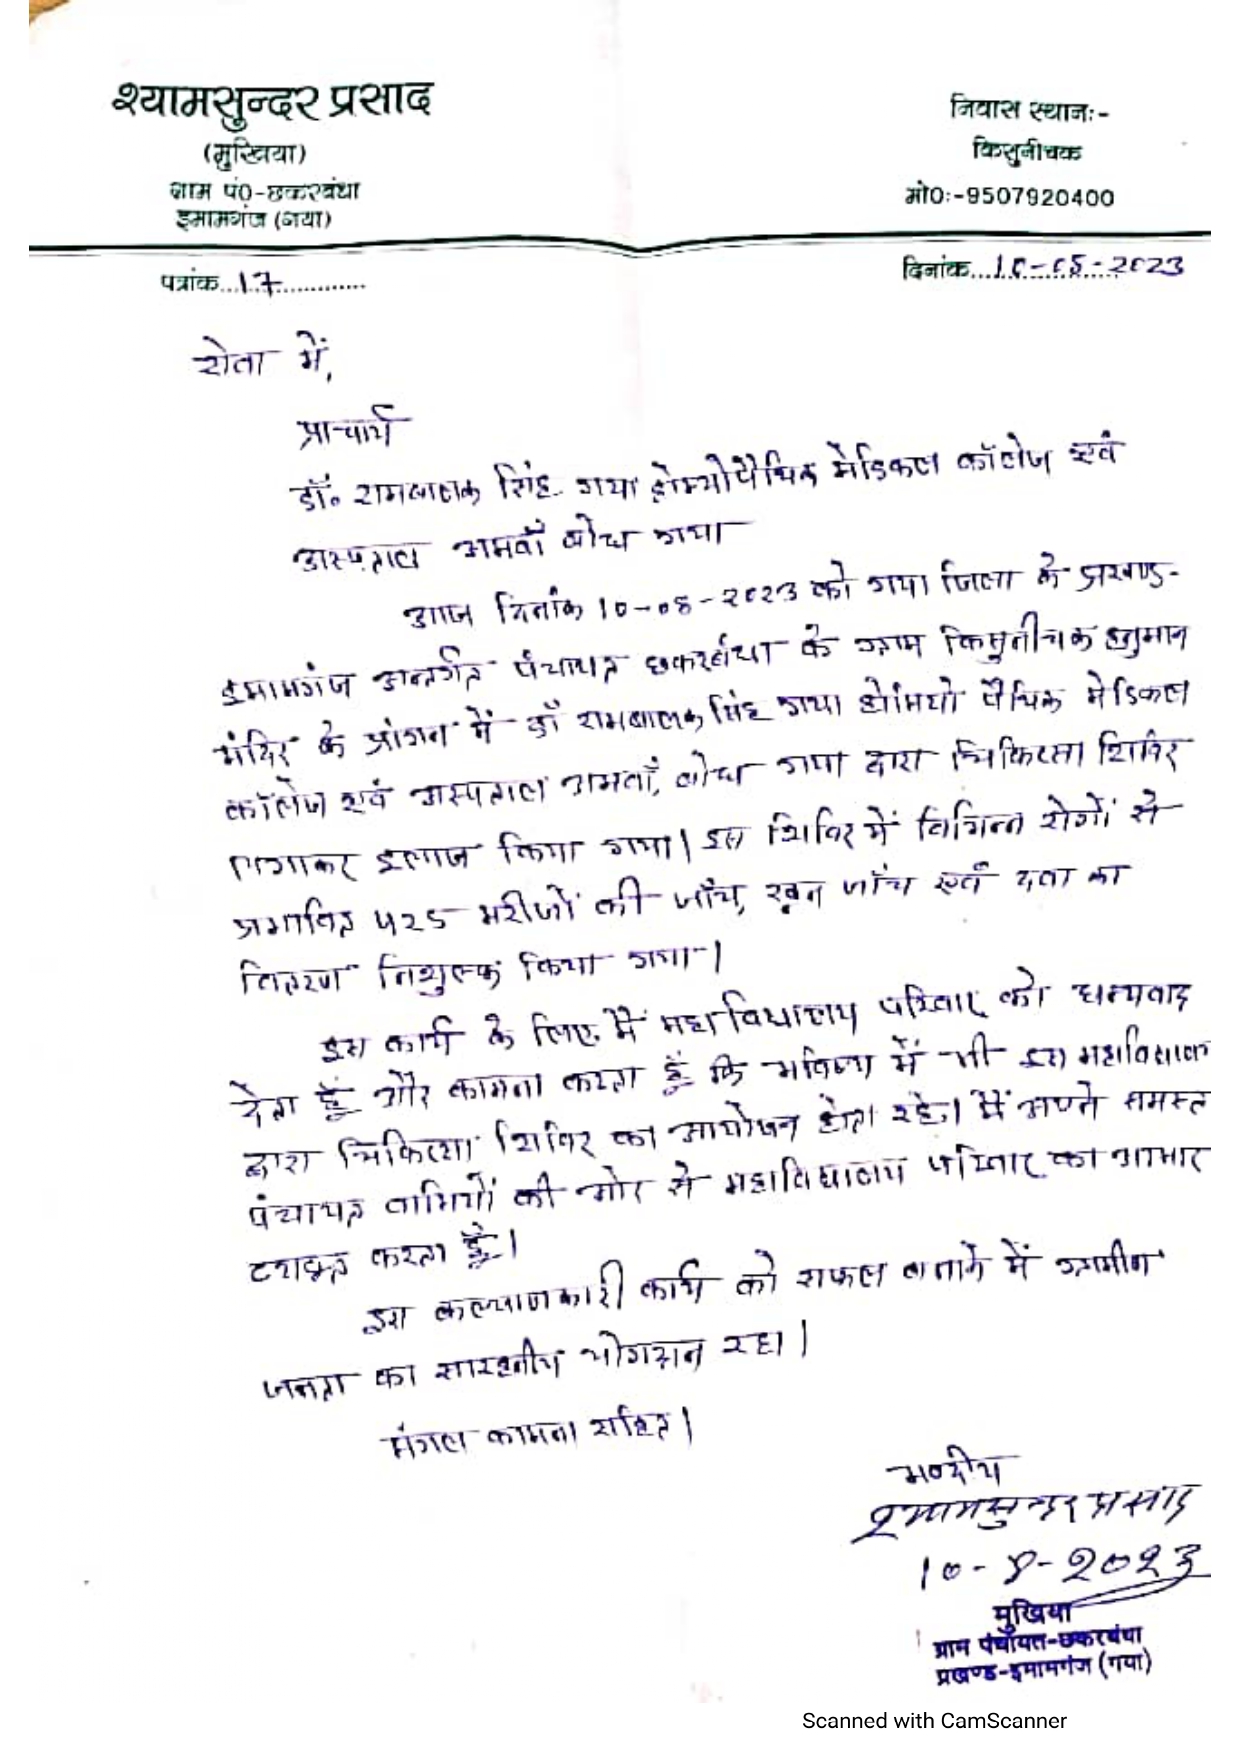 श्यामसुन्दर प्रसाद
(मुखिया)
ग्राम पं0-छकरबंधा
इमामगंज (गया)
निवास स्थानः-
किसुनीचक
मो0ः-9507920400
पत्रांक...17..............
दिनांक...10-08-2023
सेवा में,
प्राचार्य
डॉ० रामबालक सिंह गया होम्योपैथिक मेडिकल कॉलेज एवं
अस्पताल अमवाँ बोध गया
आज दिनांक 10-08-2023 को गया जिला के प्रखण्ड-
इमामगंज अन्तर्गत पंचायत छकरबंधा के ग्राम किसुनीचक हनुमान
मंदिर के प्रांगन में डॉ रामबालक सिंह गया होमियो पैथिक मेडिकल
कॉलेज एवं अस्पताल अमवाँ, बोध गया द्वारा चिकित्सा शिविर
लगाकर इलाज किया गया। इस शिविर में विभिन्न रोगों से
प्रभावित ५२५ मरीजों की जाँच, खून जाँच एवं दवा का
वितरण निशुल्क किया गया।
इस कार्य के लिए मैं महाविद्यालय परिवार को धन्यवाद
देता हूँ और कामना करता हूँ कि भविष्य में भी इस महाविद्यालय
द्वारा चिकित्सा शिविर का आयोजन होता रहे। मैं अपने समस्त
पंचायत वासियों की ओर से महाविद्यालय परिवार का आभार
व्यक्त करता हूँ।
इस कल्याणकारी कार्य को सफल बनाने में ग्रामीण
जनता का योगदान रहा।
मंगल कामना सहित।
भवदीय
श्यामसुन्दर प्रसाद
10-8-2023
मुखिया
ग्राम पंचायत-छकरबंधा
प्रखण्ड-इमामगंज (गया)
Scanned with CamScanner